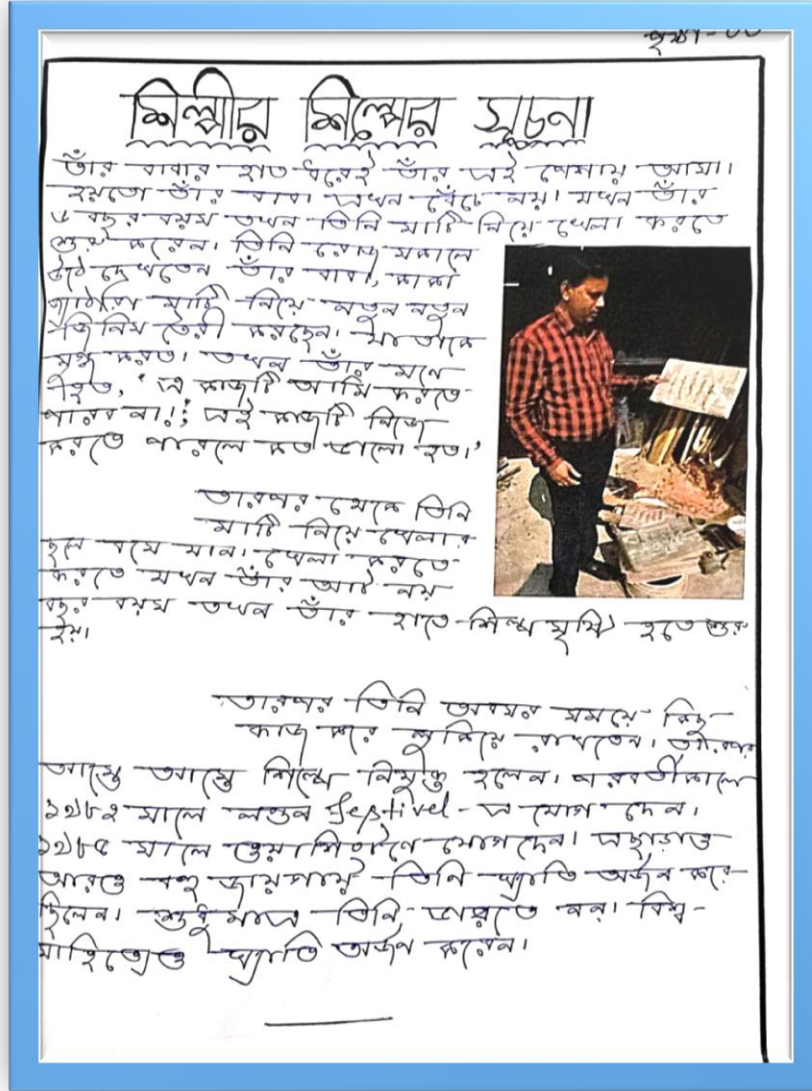 শিল্পীর শিল্পের সূচনা
তাঁর বাবার হাত ধরেই তাঁর এই পেশায় আসা।
হয়তো তাঁর বাবা এখন বেঁচে নয়। যখন তাঁর
৬ বছর বয়স তখন তিনি মাটি নিয়ে খেলা করতে
শুরু করেন। তিনি রোজ সকালে
উঠে দেখতেন তাঁর বাবা, কাকা
জ্যাঠারা মাটি নিয়ে নতুন নতুন
জিনিস তৈরী করছেন। যা তাকে
মুগ্ধ করত। তখন তাঁর মনে
হত, 'এ কাজটি আমি করতে
পারব না!; এই কাজটি নিজে
করতে পারলে কত ভালো হত।'
তারপর থেকে তিনি
মাটি নিয়ে খেলার
ছলে বসে যান। খেলা করতে
করতে যখন তাঁর আট নয়
বছর বয়স তখন তাঁর হাতে শিল্প সৃষ্টি হতে শুরু
হয়।
তারপর তিনি অবসর সময়ে কিছু
কাজ করে লুকিয়ে রাখতেন। তারপর
আস্তে আস্তে শিল্পে নিযুক্ত হলেন। পরবর্তীকালে
১৯৮২ সালে লণ্ডন festivel-এ যোগ দেন।
১৯৮৫ সালে ওয়াশিংটনে যোগদেন। এছাড়াও
আরও বহু জায়গায় তিনি খ্যাতি অর্জন করে-
ছিলেন। শুধু মাত্র তিনি ভারতে নন। বিশ্ব-
সাহিত্যেও খ্যাতি অর্জন করেন।